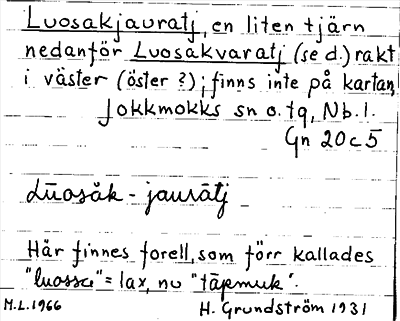 Luosakjauratj, en liten tjärn
nedanför Luosakvaratj (se d.) rakt
i väster (öster ?); finns inte på kartan,
Jokkmokks sn o. tg, Nb. l.
Gn 20c5
Lūosåk - jaurātj
Här finnes forell, som förr kallades
"luossa" = lax, nu "tāpmuk".
M.L.1966 H. Grundström 1931